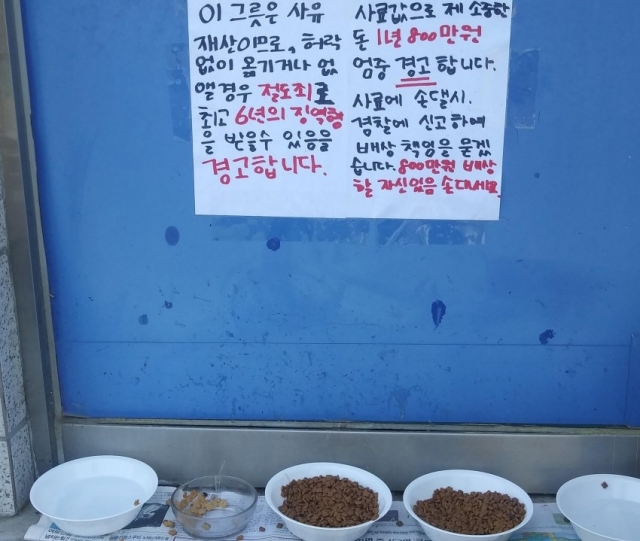 이 그릇은 사유
재산이므로, 허락
없이 옮기거나 없
앨 경우 절도죄로
최고 6년의 징역형
을 받을수 있음을
경고합니다.
사료값으로 제 소중한
돈 1년 800만원
엄중 경고합니다.
사료에 손댈시.
경찰에 신고하여
배상 책임을 묻겠
습니다. 800만원 배상
할 자신있음 손대세요.